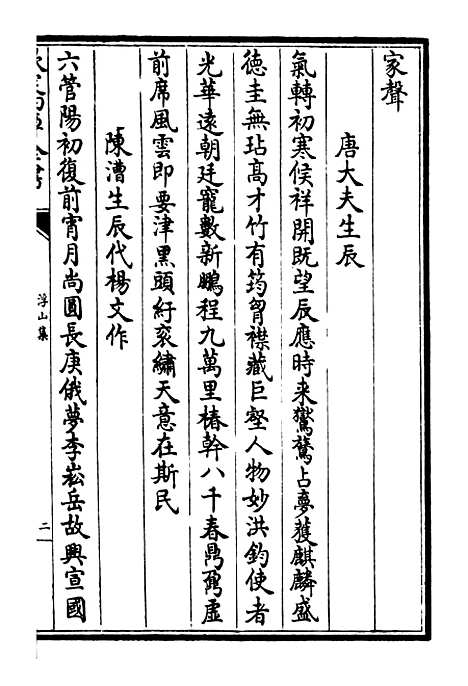 家聲
唐大夫生辰
氣轉初寒候祥開既望辰應時来鸑鷟占夢獲麒麟盛
德圭無玷髙才竹有筠胷襟藏巨壑人物妙洪鈞使者
光華遠朝廷寵數新鵬程九萬里椿幹八千春鼎鼐虛
前席風雲即要津黒頭紆衮繡天意在斯民
陳漕生辰代楊文作
六管陽初復前宵月尚圓長庚俄夢李崧岳故興宣國
浮山集
二